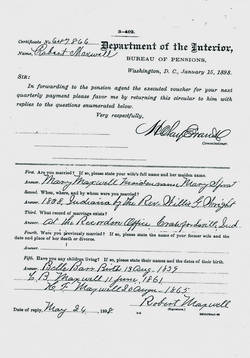 3-402.
Certificate No. 647,866
Name, Robert Maxwell
Department of the Interior,
BUREAU OF PENSIONS,
Washington, D. C., January 15, 1898.
SIR:
In forwarding to the pension agent the executed voucher for your
next quarterly payment please favor me by returning this circular to him with
replies to the questions enumerated below.
Very respectfully,
Commissioner.
First. Are you married? If so, please state your wife's full name and her maiden name.
Answer. Mary Maxwell Maiden name Mary
Second. When, where, and by whom were you married?
Answer. 1858, Indiana by the Rev. Willis G. Wright
Third. What record of marriage exists?
Answer. at the Recorder Office Crawfordsville, Ind
Fourth. Were you previously married? If so, please state the name of your former wife and the
date and place of her death or divorce.
Answer.
Fifth. Have you any children living? If so, please state their names and the dates of their birth.
Answer. Belle Barr Birth 18 Aug. 1859
C. B. Maxwell 11 June, 1861
Maxwell 1865
Robert Maxwell
(Signature.)
Date of reply, May 24, 1898